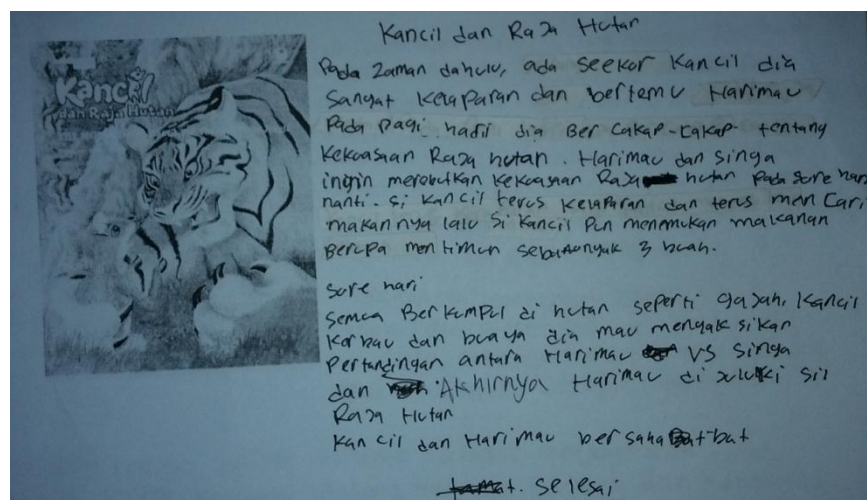 Kancil dan Raja Hutan
Kancil
dan Raja Hutan
Pada Zaman dahulu, ada seekor Kancil dia
sangat kelaparan dan bertemu Harimau
Pada pagi hari dia Bercakap-cakap tentang
kekuasaan Raja hutan. Harimau dan singa
ingin merebutkan kekuasaan Raja hutan pada sore hari
nanti. si kancil terus kelaparan dan terus mencari
makannya lalu si kancil pun menemukan makanan
Berupa mentimun sebanyak 3 buah.
sore hari
semua Berkumpul di hutan seperti gajah, Kancil
kerbau dan buaya dia mau menyaksikan
Pertandingan antara Harimau VS Singa
dan Akhirnya Harimau di juluki si
Raja Hutan
Kancil dan Harimau bersahabat
selesai